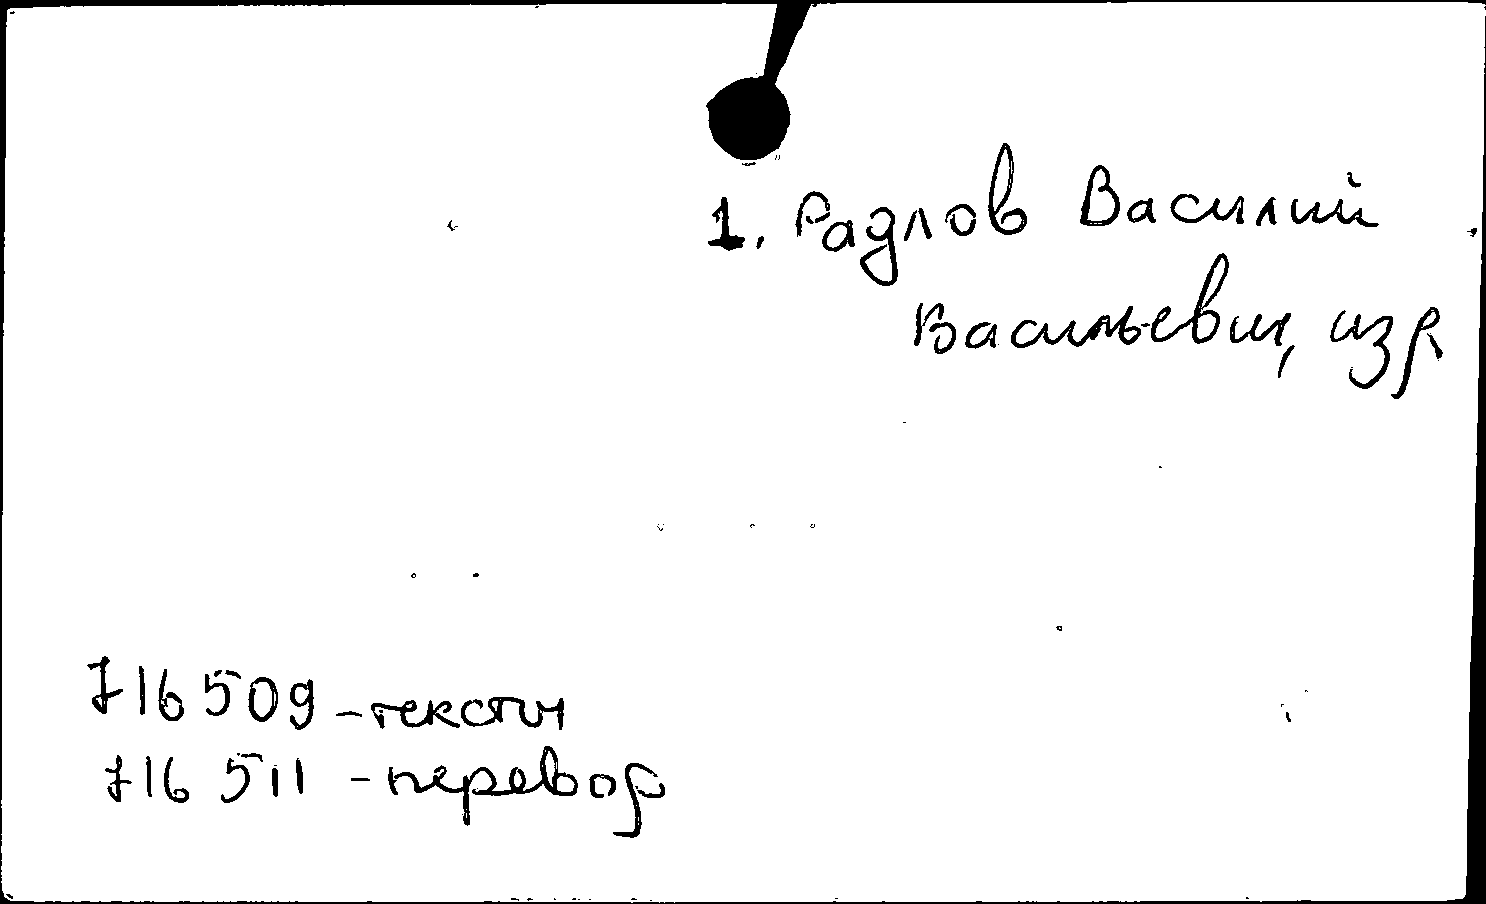 1. Радлов Василий
Васильевич, изд
716509 - тексты
716511 - перевод